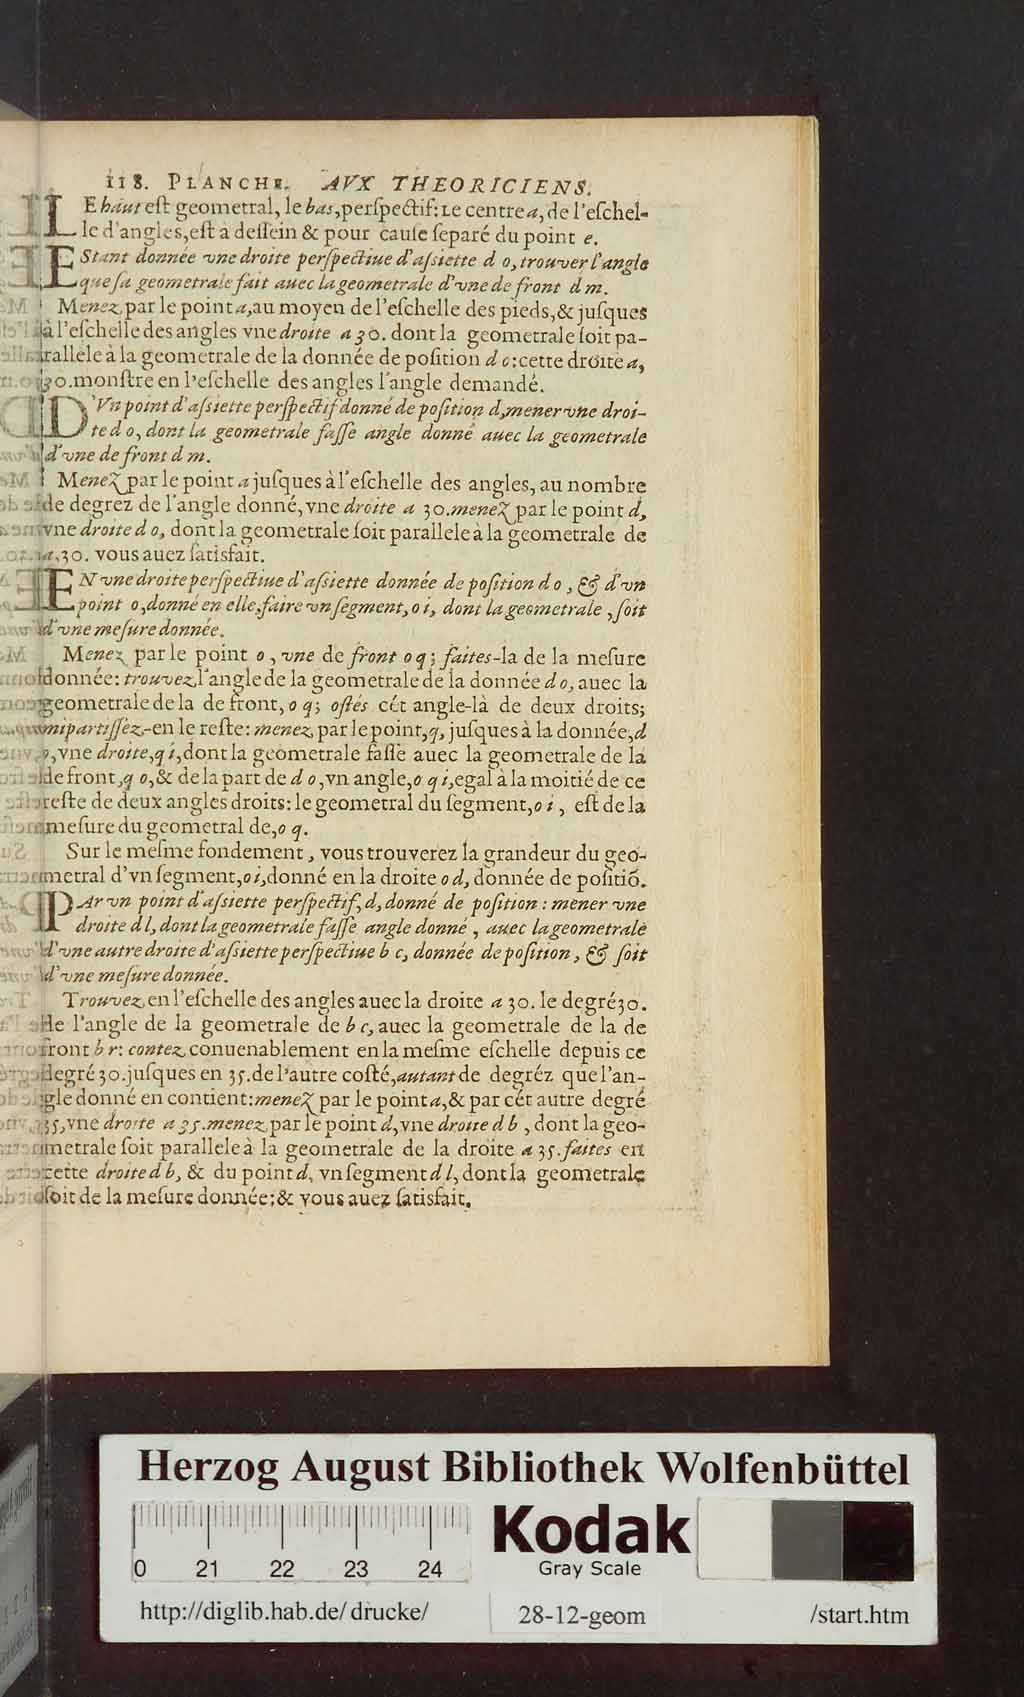 118. PLANCHE. AVX THEORICIENS.
LE haut eſt geometral, le bas, perſpectif: Le centre a, de l'eſchel-
le d'angles, eſt à deſſein & pour cauſe ſeparé du point e.
EStant donnée vne droite perſpectiue d'aſsiette d o, trouver l'angle
que ſa geometrale fait auec la geometrale d'vne de front d m.
Menez par le point a, au moyen de l'eſchelle des pieds, & juſques
à l'eſchelle des angles vne droite a 30. dont la geometrale ſoit pa-
rallele à la geometrale de la donnée de poſition d o: cette droite a,
30. monſtre en l'eſchelle des angles l'angle demandé.
D'Vn point d'aſsiette perſpectif donné de poſition d, mener vne droi-
te d o, dont la geometrale faſſe angle donné auec la geometrale
d'vne de front d m.
Menez par le point a juſques à l'eſchelle des angles, au nombre
de degrez de l'angle donné, vne droite a 30. menez par le point d,
vne droite d o, dont la geometrale ſoit parallele à la geometrale de
a, 30. vous auez ſatisfait.
EN vne droite perſpectiue d'aſsiette donnée de poſition d o, & d'vn
point o, donné en elle, faire vn ſegment, o i, dont la geometrale, ſoit
d'vne meſure donnée.
Menez par le point o, vne de front o q; faites-la de la meſure
donnée: trouvez l'angle de la geometrale de la donnée d o, auec la
geometrale de la de front, o q; oſtés cét angle-là de deux droits;
mipartiſſez-en le reſte: menez, par le point, q, juſques à la donnée, d
o, vne droite, q i, dont la geometrale faſſe auec la geometrale de la
de front, q o, & de la part de d o, vn angle, o q i, egal à la moitié de ce
reſte de deux angles droits: le geometral du ſegment, o i, eſt de la
meſure du geometral de, o q.
Sur le meſme fondement, vous trouverez la grandeur du geo-
metral d'vn ſegment, o i, donné en la droite o d, donnée de poſitiõ.
PAr vn point d'aſsiette perſpectif, d, donné de poſition: mener vne
droite d l, dont la geometrale faſſe angle donné, auec la geometrale
d'vne autre droite d'aſsiette perſpectiue b c, donnée de poſition, & ſoit
d'vne meſure donnée.
Trouvez, en l'eſchelle des angles auec la droite a 30. le degré 30.
de l'angle de la geometrale de b c, auec la geometrale de la de
front b r: contez convenablement en la meſme eſchelle depuis ce
degré 30. juſques en 35. de l'autre coſté, autant de degréz que l'an-
gle donné en contient: menez par le point a, & par cét autre degré
35, vne droite a 35. menez par le point d, vne droite d b, dont la geo-
metrale ſoit parallele à la geometrale de la droite a 35. faites en
cette droite d b, & du point d, vn ſegment d l, dont la geometrale
ſoit de la meſure donnée; & vous auez ſatisfait.
Herzog August Bibliothek Wolfenbüttel
0 21 22 23 24
Kodak
Gray Scale
http://diglib.hab.de/drucke/ 28-12-geom /start.htm